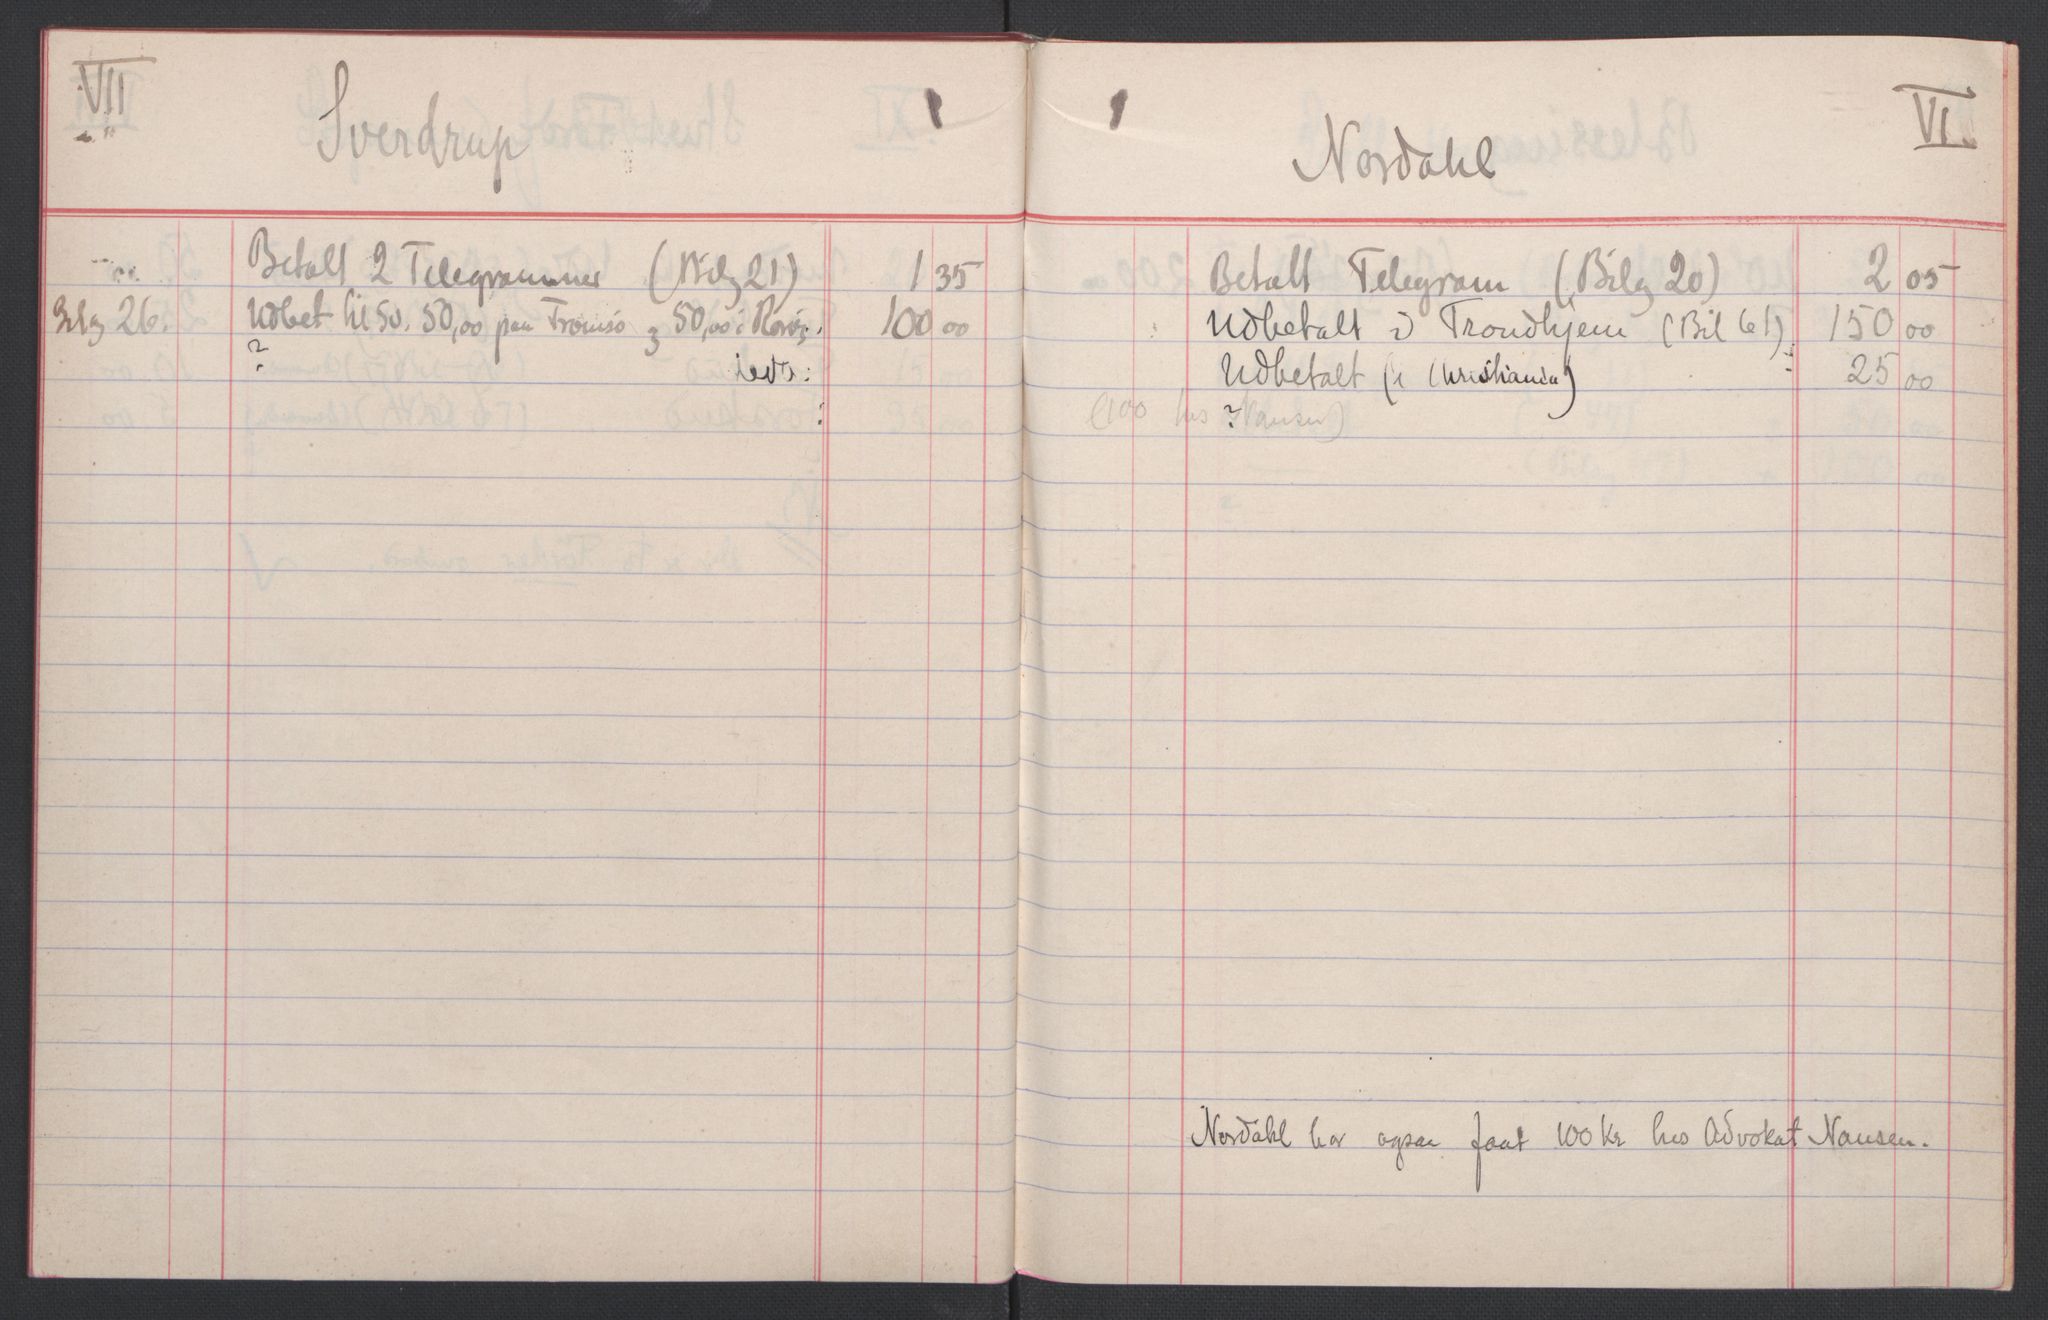 VII
Sverdrup
Betalt 2 Telegrammer (Bilg 21) 1 35
Bilg 26. Udbet til 50. 50,00 paa Tromsö 50,00 i 100 00
?
VI.
Nordahl
Betalt Telegram (Bilg 20) 2 05
Udbetalt i Trondhjem (Bil 61) 150 00
Udbetalt (i Christiania) 25 00
(100 hos Nansen)
?
Nordahl har ogsaa faat 100 Kr hos Advokat Nansen.